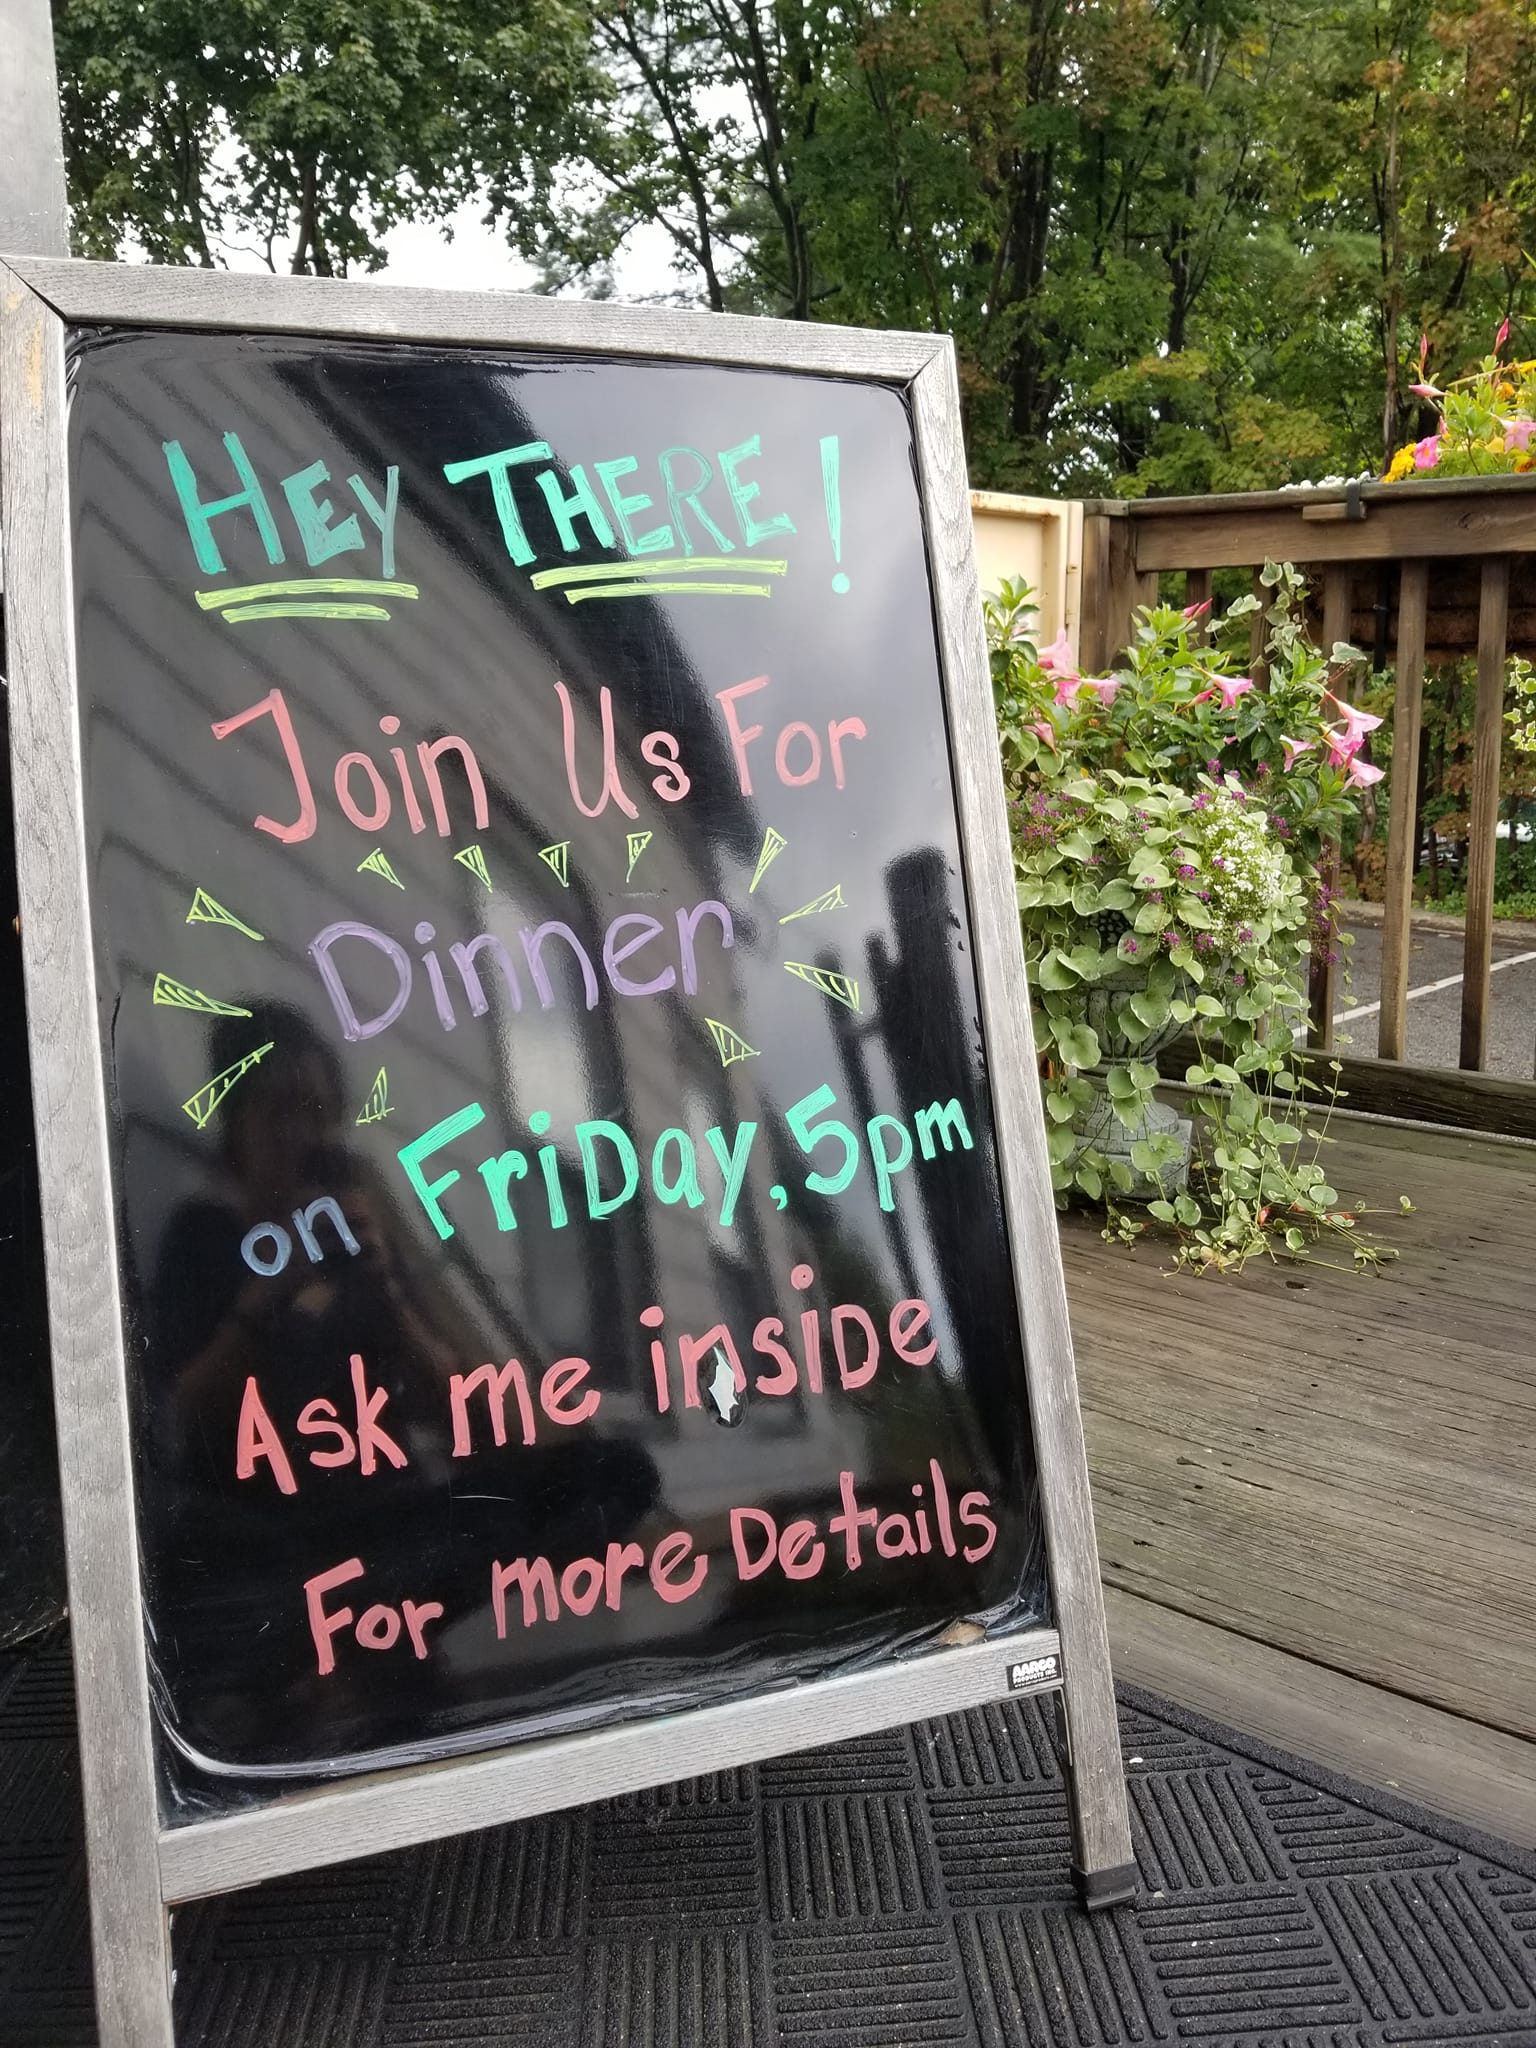 HEY THERE!
Join Us For
Dinner
on FriDay, 5pm
Ask me insiDe
For more Details
AARCO
PRODUCTS INC.